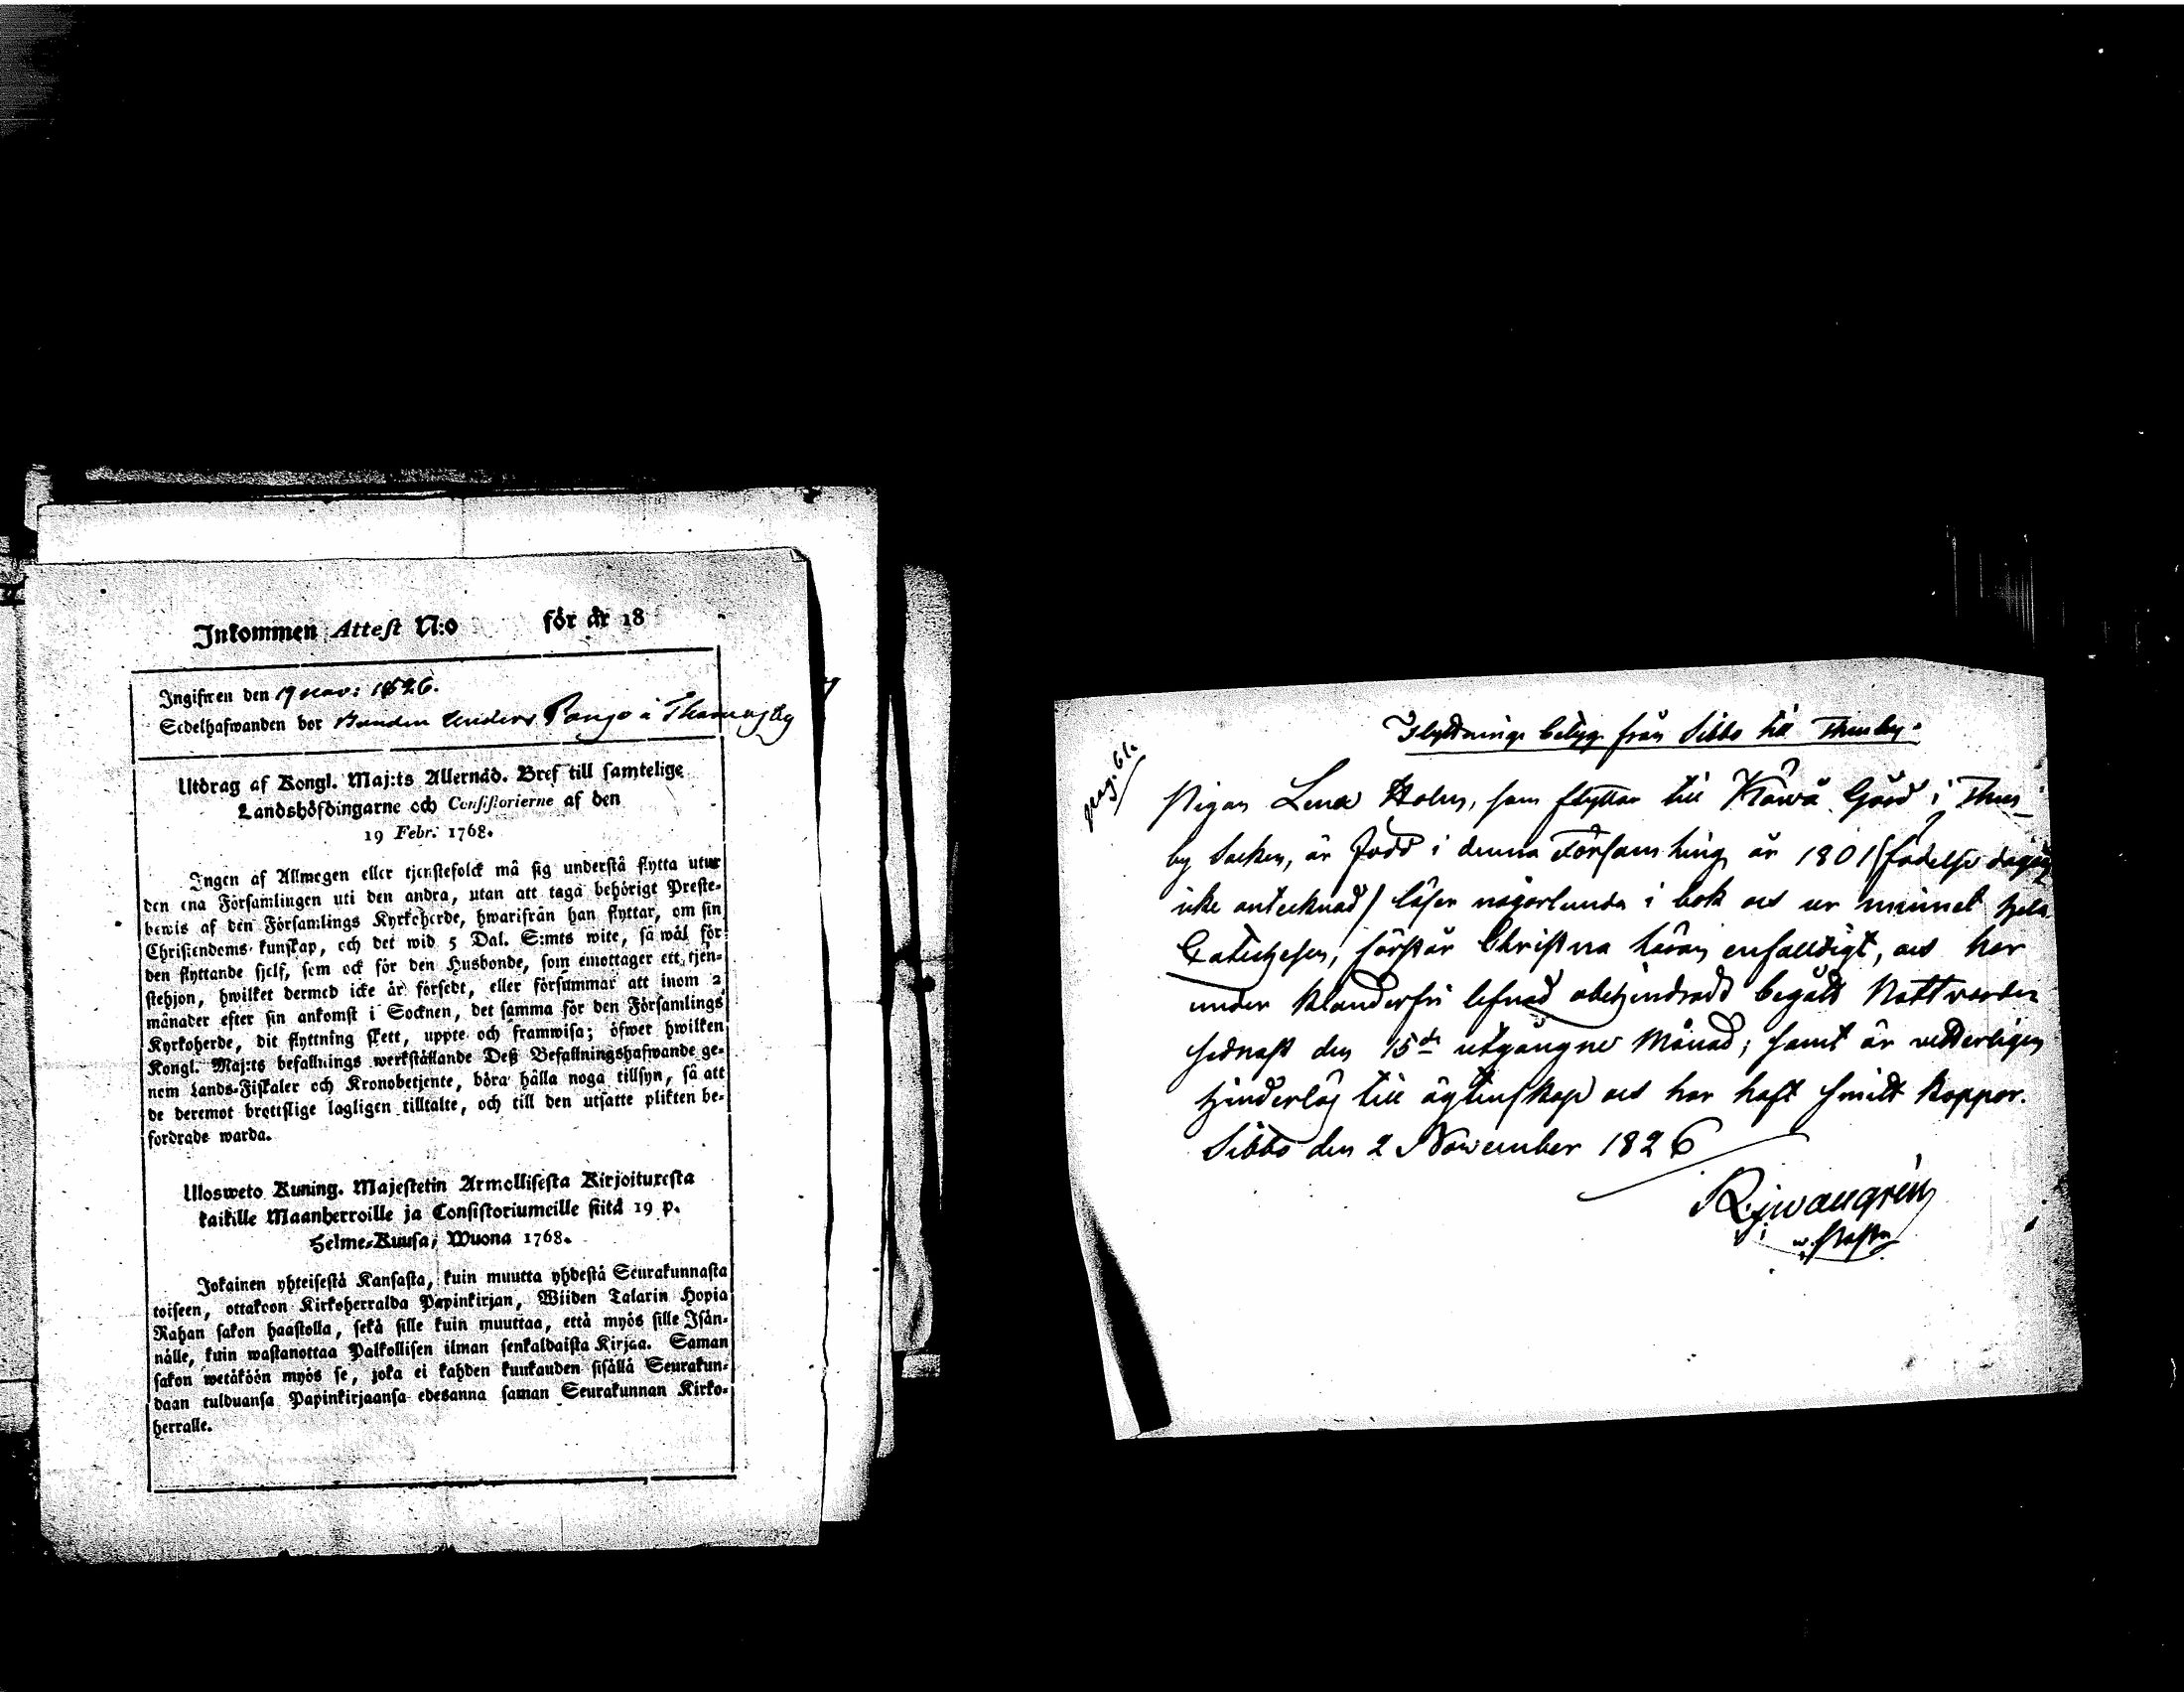 Inkommen Attest N:o för år 18
Ingifwen den 19 nov: 1826.
Sedelhafwanden bor Bonden Anders à
Utdrag af Kongl. Maj:ts Allernåd. Bref till samtelige
Landshöfdingarne och Consistorierne af den
19 Febr. 1768.
Ingen af Allmogen eller tjenstefolck må sig understå flytta utur
den ena Församlingen uti den andra, utan att taga behörigt Preste-
bewis af den Församlings Kyrkoherde, hwarifrån han flyttar, om sin
Christendoms kunskap, och det wid 5 Dal. S:mts wite, så wål för
den flyttande sjelf, som ock för den Husbonde, som emottager ett tjen-
stehjon, hwilket dermed icke år försedt, eller försummar att inom 2
månader efter sin ankomst i Socknen, det samma för den Församlings
Kyrkoherde, dit flyttning skett, uppte och framwisa; öfwer hwilken
Kongl. Maj:ts befallnings werkstållande Deß Befallningshafwande ge-
nom Lands-Fiskaler och Kronobetjente, böra hålla noga tillsyn, så att
de deremot brottslige lagligen tilltalte, och till den utsatte plikten be-
fordrade warda.
Ulosweto Kuning. Majestetin Armollisesta Kirjoituxesta
kaikille Maanherroille ja Consistoriumeille siitå 19 p.
Helme-Kuusa, Wuona 1768.
Jokainen yhteisestå Kansasta, kuin muutta yhdestå Seurakunnasta
toiseen, ottakoon Kirkoherralda Papinkirjan, Wiiden Talarin Hopia
Rahan sakon haastolla, sekå sille kuin muuttaa, ettå myös sille Isån-
nålle, kuin wastanottaa Palkollisen ilman senkaldaista Kirjaa. Saman
sakon wetåköön myös se, joka ei kahden kuukauden sisållå Seurakun-
daan tulduansa Papinkirjaansa edesanna saman Seurakunnan Kirko-
herralle.
pag. 61.
Flyttnings betyg från Sibbo till Thusby.
Pigan Lena Holm, som flyttar till Gård i Thus-
by Socken, är född i denna Församling år 1801 (födelse dagen
icke antecknad) läser någorlunda i bok och ur minnet hela
Catechesen, förstår Christna läran enfaldigt, och har
under klanderfri lefnad obehindradt begått Nattvarden
sednast den 15de utgångne Månad; samt är vetterligen
hinderlös till ägtenskap och har haft smitt koppor.
Sibbo den 2 November 1826